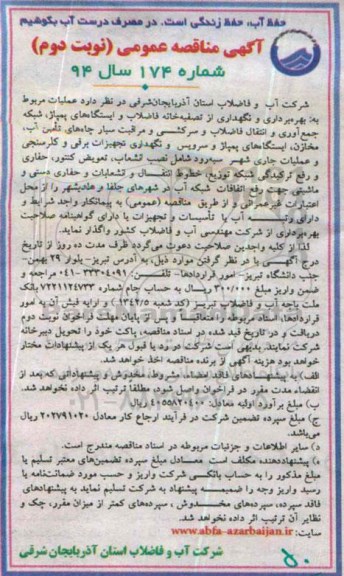 حفظ آب، حفظ زندگی است. در مصرف درست آب بکوشیم
آگهی مناقصه عمومی (نوبت دوم)
شماره ۱۷۴ سال ۹۴
شرکت آب و فاضلاب استان آذربایجان‌شرقی در نظر دارد عملیات مربوط
به: بهره‌برداری و نگهداری از تصفیه‌خانه فاضلاب و ایستگاه‌های پمپاژ، شبکه
جمع‌آوری و انتقال فاضلاب و سرکشی و مراقبت سیار چاه‌های تأمین آب،
مخازن، ایستگاه‌های پمپاژ و سرویس و نگهداری تجهیزات برقی و کلرسنجی
و عملیات جاری شهر سیه‌رود شامل نصب انشعاب، تعویض کنتور، حفاری
و رفع ترکیدگی شبکه توزیع، خطوط انتقال و انشعابات و حفاری دستی و
ماشینی جهت رفع اتفاقات شبکه آب در شهرهای جلفا و هادیشهر را از محل
اعتبارات غیرعمرانی و از طریق مناقصه (عمومی) به پیمانکار واجد شرایط و
دارای رتبه آب یا تأسیسات و تجهیزات یا دارای گواهینامه صلاحیت
بهره‌برداری از شرکت مهندسی آب و فاضلاب کشور واگذار نماید.
لذا از کلیه واجدین صلاحیت دعوت می‌گردد ظرف مدت ده روز از تاریخ
درج آگهی با در نظر گرفتن موارد ذیل، به آدرس تبریز- بلوار ۲۹ بهمن-
جنب دانشگاه تبریز- امور قراردادها- تلفن: ۳۳۳۰۴۰۹۱-۰۴۱ مراجعه و
ضمن واریز مبلغ ۳۰۰/۰۰۰ ریال به حساب جام شماره بانک
ملت باجه آب و فاضلاب تبریز (کد شعبه ۱۳۴۲/۵) و ارایه فیش آن به امور
قراردادها، اسناد مربوطه را دریافت و پس از پایان مهلت فراخوان نوبت دوم
دریافت و در تاریخ قید شده در اسناد مناقصه، پاکت خود را تحویل دبیرخانه
شرکت نمایند. بدیهی است شرکت در رد یا قبول هر یک از پیشنهادات مختار
خواهد بود هزینه آگهی از برنده مناقصه اخذ خواهد شد.
الف) به پیشنهادهای فاقد امضاء، مشروط، مخدوش و پیشنهاداتی که بعد از
انقضاء مدت مقرر در فراخوان واصل شود، مطلقاً ترتیب اثر داده نخواهد شد.
ب) مبلغ برآورد اولیه معادل: ریال
ج) مبلغ سپرده تضمین شرکت در فرآیند ارجاع کار معادل ۲۰۲۷۹۱۰۲۰ ریال
می‌باشد.
د) سایر اطلاعات و جزئیات مربوطه در اسناد مناقصه مندرج است.
ه) پیشنهاددهنده مکلف است معادل مبلغ سپرده تضمین‌های معتبر تسلیم یا
مبلغ مذکور را به حساب بانکی شرکت واریز و حسب مورد ضمانت‌نامه یا
رسید واریز وجه را ضمیمه پیشنهاد به شرکت تسلیم نماید به پیشنهادهای
فاقد سپرده، سپرده‌های مخدوش، سپرده‌های کمتر از میزان مقرر، چک و
نظایر آن ترتیب اثر داده نخواهد شد.
سایت: www.abfa-azarbaijan.ir
شرکت آب و فاضلاب استان آذربایجان شرقی